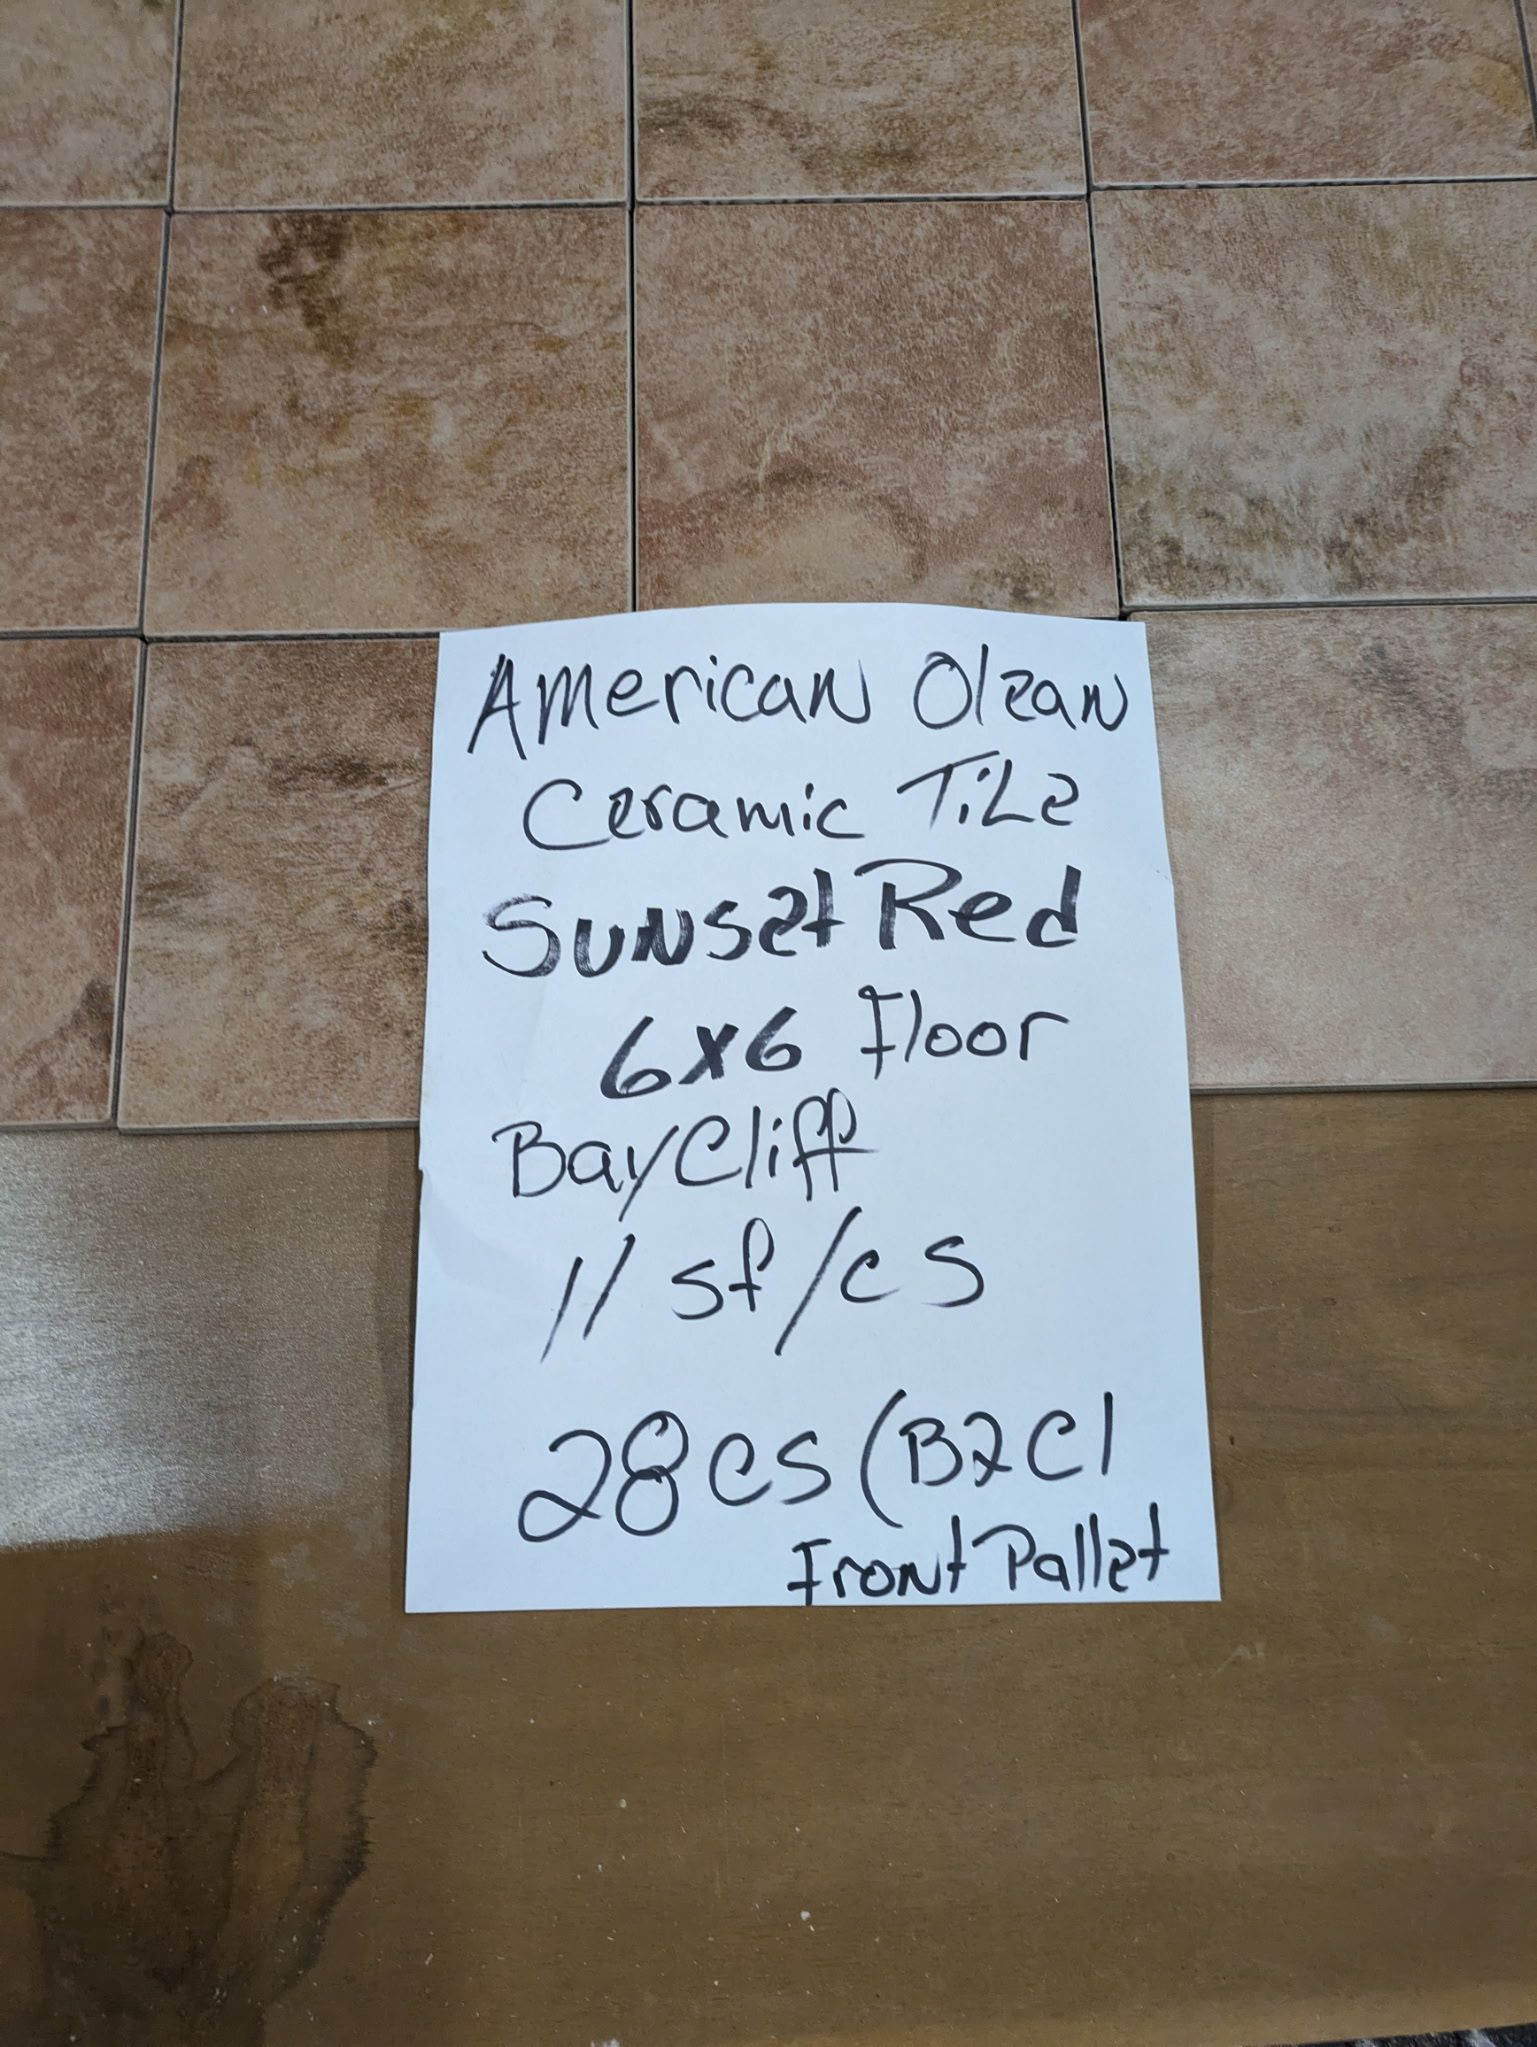 American Olean
Ceramic Tile
Sunset Red
6x6 Floor
BayCliff
11 sf/cs
28 cs (B2C1
Front Pallet